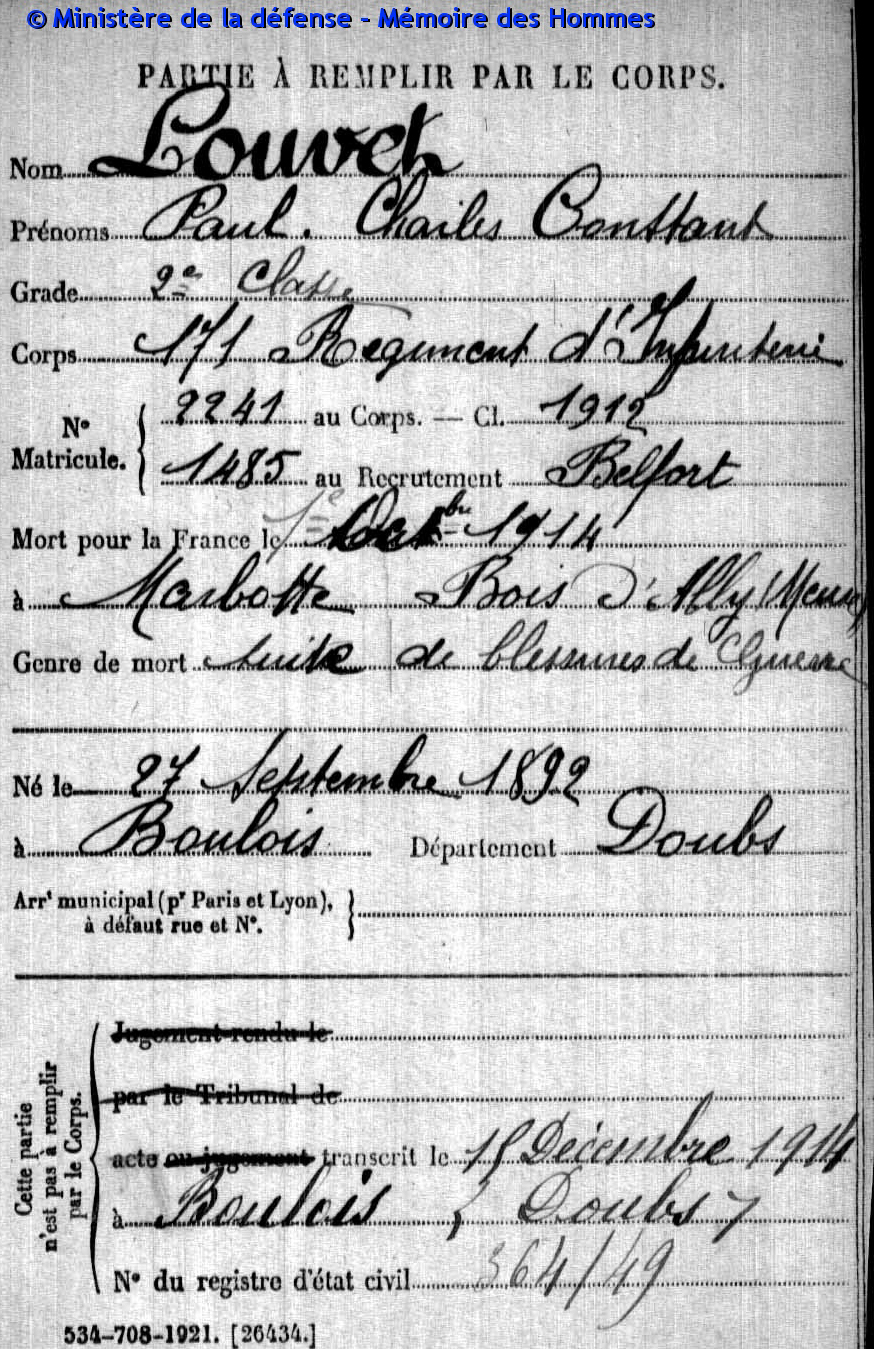 © Ministère de la défense - Mémoire des Hommes
PARTIE À REMPLIR PAR LE CORPS.
Nom Louvet
Prénoms Paul. Charles Constant
Grade 2e Classe
Corps 171 Régiment d'Infanterie
N° Matricule. { 2241 au Corps. — Cl. 1912
1485 au Recrutement Belfort
Mort pour la France le 1e Octbre 1914
à Marbotte Bois d'Ailly (Meuse)
Genre de mort suite de blessures de Guerre
Né le 27 Septembre 1892
à Boulois Département Doubs
Arrt municipal (pr Paris et Lyon), }
à défaut rue et N°.
Cette partie
n'est pas à remplir
par le Corps.
Jugement rendu le
par le Tribunal de
acte ou jugement transcrit le 15 Décembre 1914
à Boulois Doubs
N° du registre d'état civil 364/49
534-708-1921. [26434.]